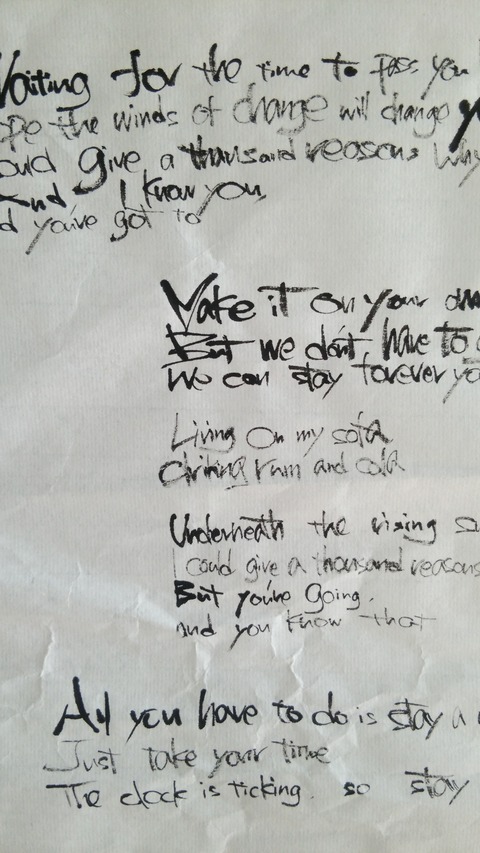 Waiting for the time to pass you
ope the winds of change will change
ould give a thousand reasons Why
And I know you,
d you've got to
Make it on your
But we don't have to
We can stay forever yo
Living On my sofa
drinking rum and cola
Underneath the rising su
I could give a thousand reasons
But you're Going.
and you know that
All you have to do is stay a
Just take your time
The clock is ticking. so stay